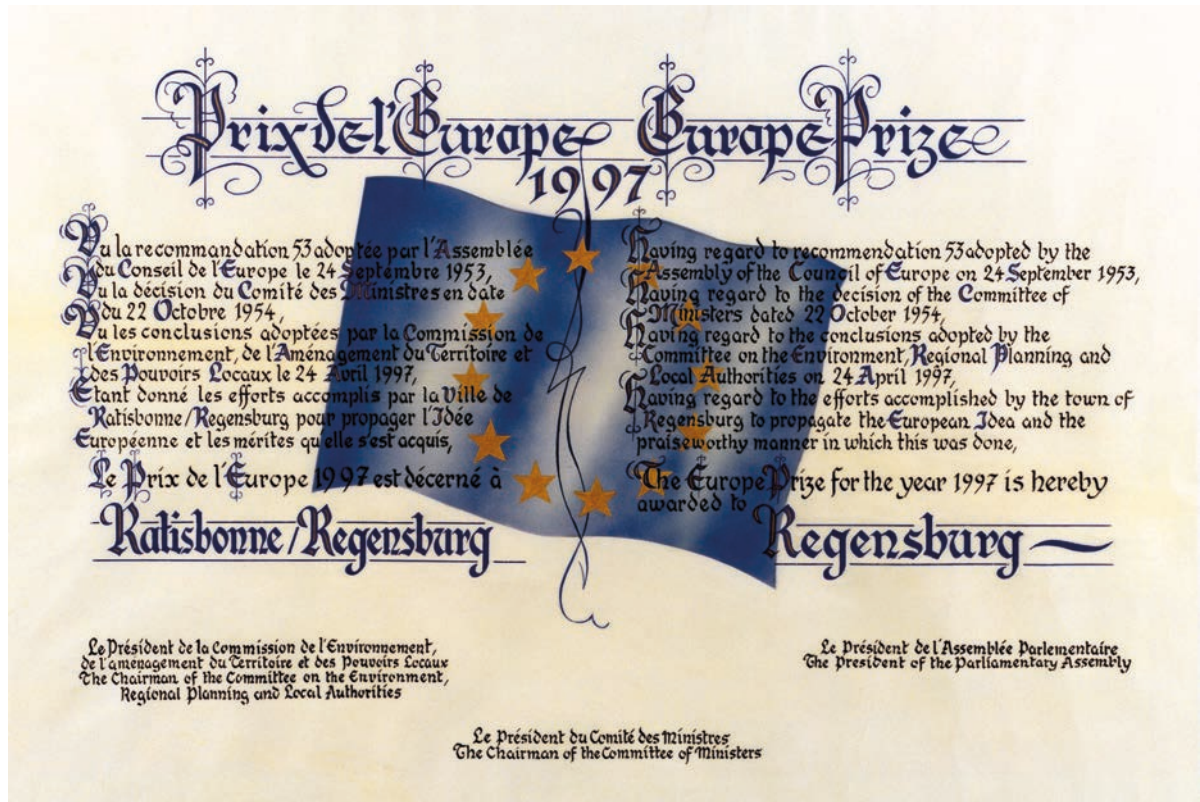 Prix de l'Europe Europe Prize
1997
Vu la recommandation 53 adoptée par l'Assemblée
du Conseil de l'Europe le 24 Septembre 1953,
Vu la décision du Comité des Ministres en date
du 22 Octobre 1954,
Vu les conclusions adoptées par la Commission de
l'Environnement, de l'Aménagement du Territoire et
des Pouvoirs Locaux le 24 Avril 1997,
Etant donné les efforts accomplis par la Ville de
Ratisbonne/Regensburg pour propager l'Idée
Européenne et les mérites qu'elle s'est acquis,
Le Prix de l'Europe 1997 est décerné à
Ratisbonne/Regensburg
Having regard to recommendation 53 adopted by the
Assembly of the Council of Europe on 24 September 1953,
Having regard to the decision of the Committee of
Ministers dated 22 October 1954,
Having regard to the conclusions adopted by the
Committee on the Environment, Regional Planning and
Local Authorities on 24 April 1997,
Having regard to the efforts accomplished by the town of
Regensburg to propagate the European Idea and the
praiseworthy manner in which this was done,
The Europe Prize for the year 1997 is hereby
awarded to
Regensburg
Le Président de la Commission de l'Environnement,
de l'amenagement du Territoire et des Pouvoirs Locaux
The Chairman of the Committee on the Environment,
Regional Planning and Local Authorities
Le Président de l'Assemblée Parlementaire
The President of the Parliamentary Assembly
Le Président du Comité des Ministres
The Chairman of the Committee of Ministers